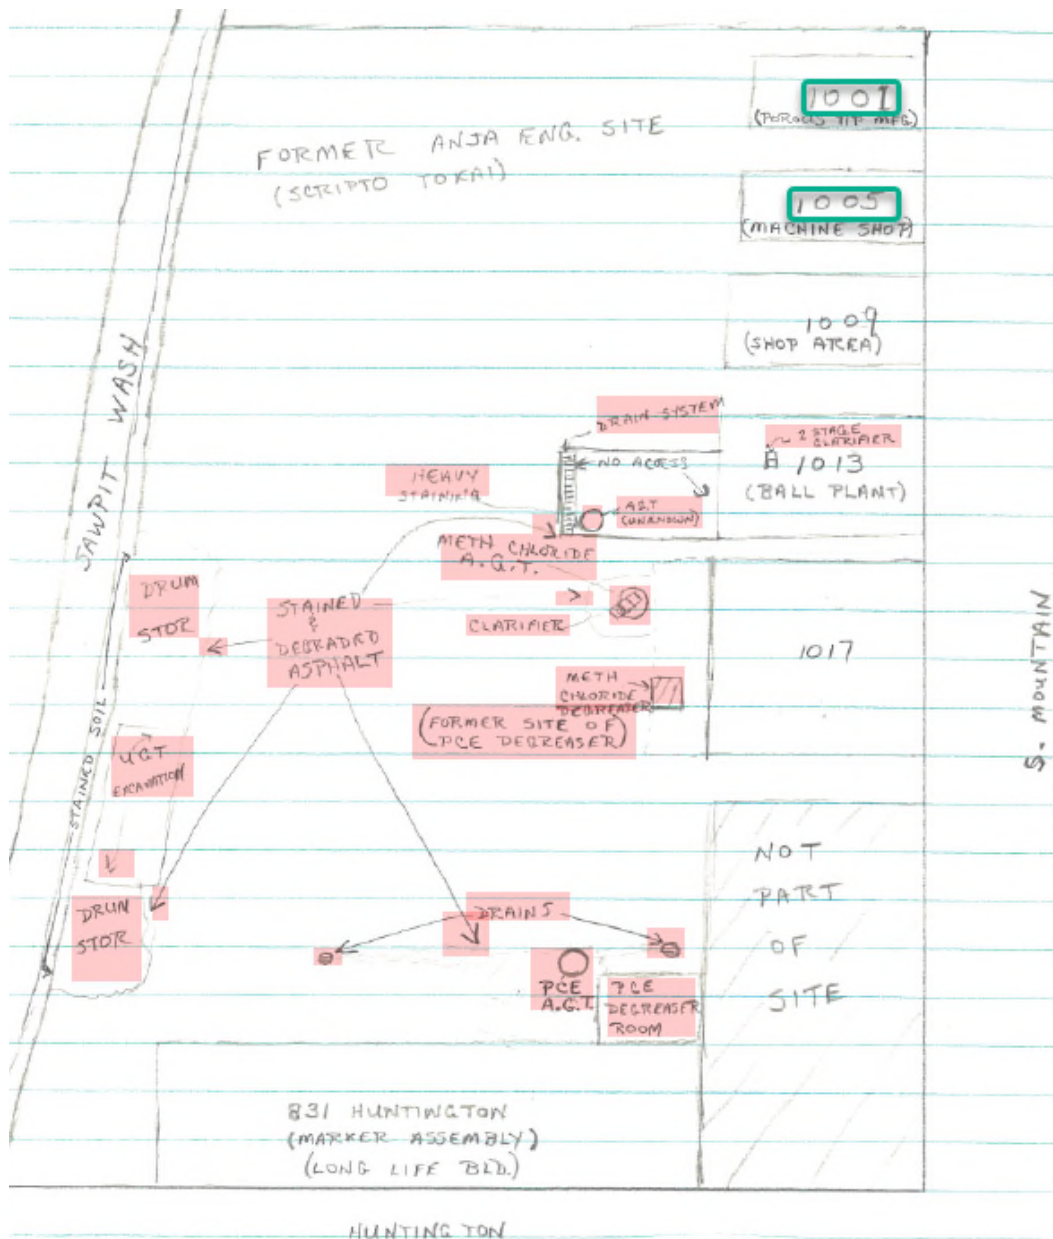 1001
(POROUS TIP MFG.)
FORMER ANJA ENG. SITE
(SCRIPTO TOKAI)
1005
(MACHINE SHOP)
1009
(SHOP AREA)
SAWPIT WASH
DRAIN SYSTEM
2 STAGE
CLARIFIER
NO ACCESS
1013
(BALL PLANT)
HEAVY
STAINING
AGT
(UNKNOWN)
METH CHLORIDE
A.G.T.
DRUM
STOR
STAINED
&
DEGRADED
ASPHALT
CLARIFIER
1017
S. MOUNTAIN
METH
CHLORIDE
DEGREASER
(FORMER SITE OF
PCE DEGREASER)
STAINED SOIL
UGT
EXCAVATION
NOT
PART
OF
SITE
DRUM
STOR
DRAINS
PCE
A.G.T.
PCE
DEGREASER
ROOM
831 HUNTINGTON
(MARKER ASSEMBLY)
(LONG LIFE BLD.)
HUNTINGTON